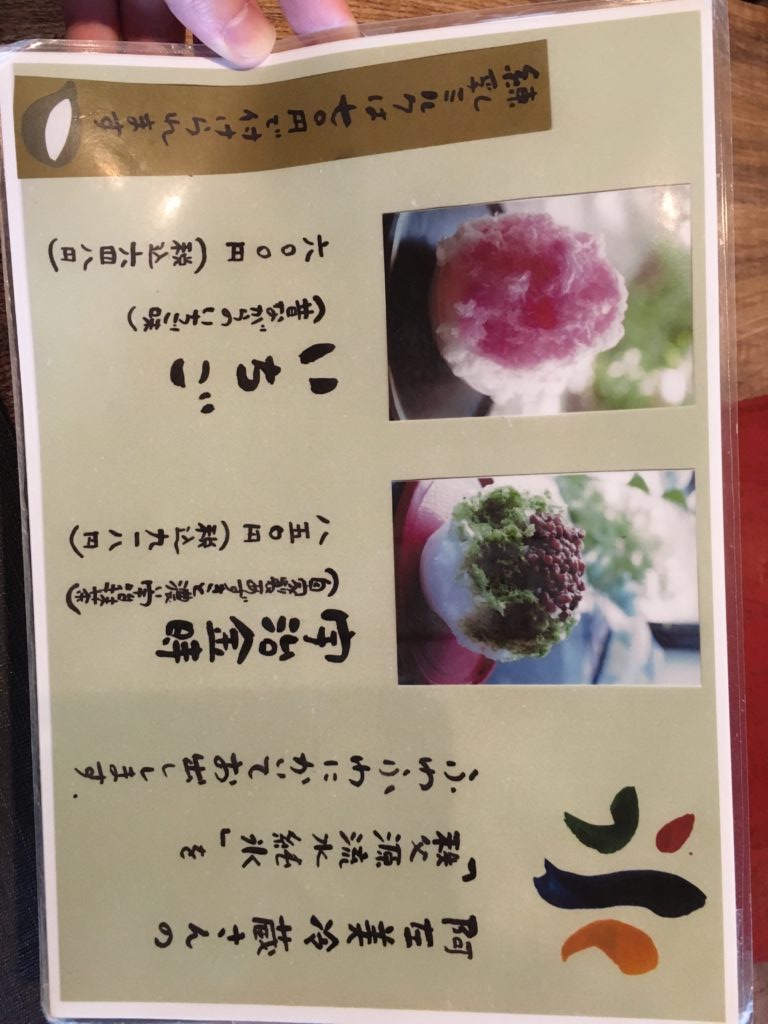 氷
阿左美冷蔵さんの
「秩父源流水純氷」を
ふわふわにかいてお出しします。
宇治金時
(自家製あずきと濃い宇治抹茶)
八五〇円(税込九一八円)
いちご
(昔ながらのいちご味)
六〇〇円(税込六四八円)
練乳ミルクは七〇円で付けられます